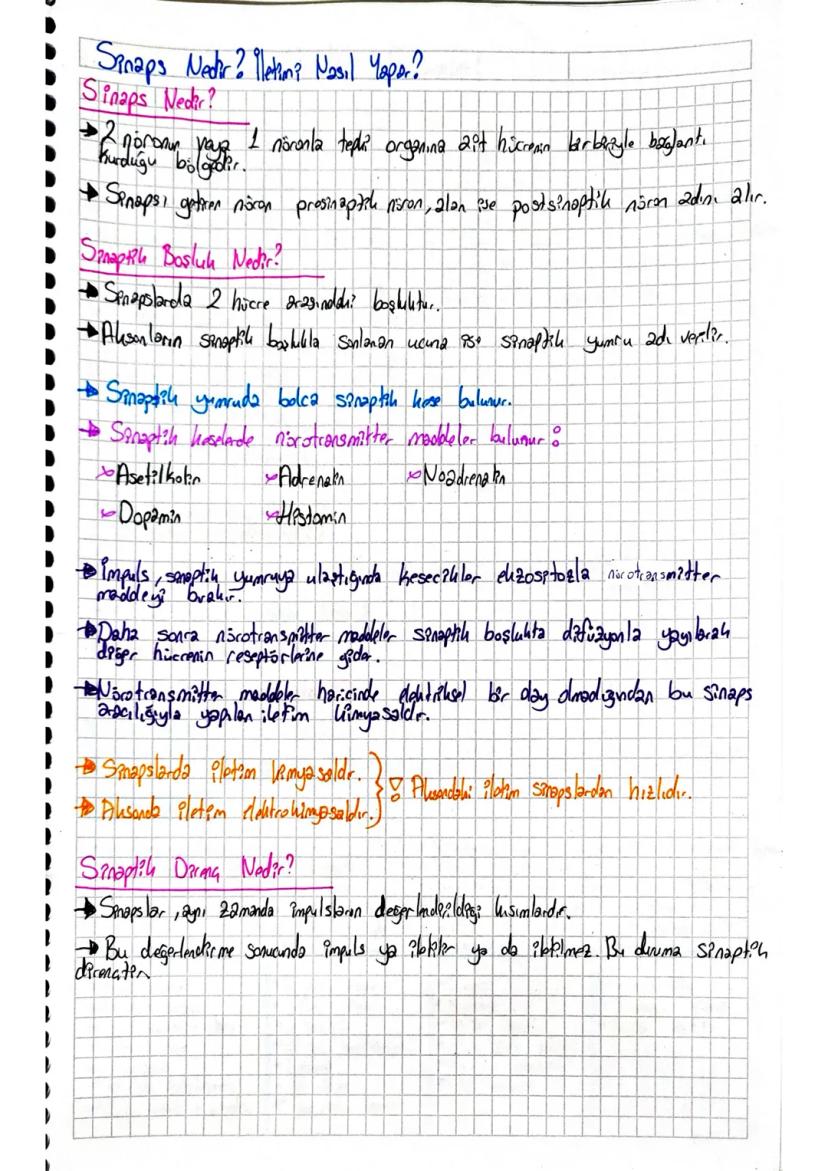 Sinaps Nedir? İletimi Nasıl Yapar?
Sinaps Nedir?
→ 2 nöronun veya 1 nöronla tepki organına ait hücrenin birbiriyle bağlantı
kurduğu bölgedir.
→ Sinapsı getiren nöron presinaptik nöron, alan ise postsinaptik nöron adını alır.
Sinaptik Boşluk Nedir?
→ Sinapslarda 2 hücre arasındaki boşluktur.
→ Aksonların sinaptik boşlukla sonlanan ucuna ise sinaptik yumru adı verilir.
→ Sinaptik yumruda bolca sinaptik kese bulunur.
→ Sinaptik keselerde nörotransmitter maddeler bulunur:
Asetilkolin Adrenalin Noadrenalin
Dopamin Histamin
→ İmpuls, sinaptik yumruya ulaştığında kesecikler ekzositozla nörotransmitter
maddeyi bırakır.
→ Daha sonra nörotransmitter maddeler sinaptik boşlukta difüzyonla yayılarak
diğer hücrenin reseptörlerine gider.
→ Nörotransmitter maddeler haricinde elektriksel bir olay olmadığından bu sinaps
aracılığıyla yapılan iletim kimyasaldır.
→ Sinapslarda iletim kimyasaldır. } ! Aksondaki iletim sinapslardan hızlıdır.
→ Aksonda iletim elektrokimyasaldır.
Sinaptik Direnç Nedir?
→ Sinapslar, aynı zamanda impulsların değerlendirildiği kısımlardır.
→ Bu değerlendirme sonucunda impuls ya iletilir ya da iletilmez. Bu duruma sinaptik
dirençtir.